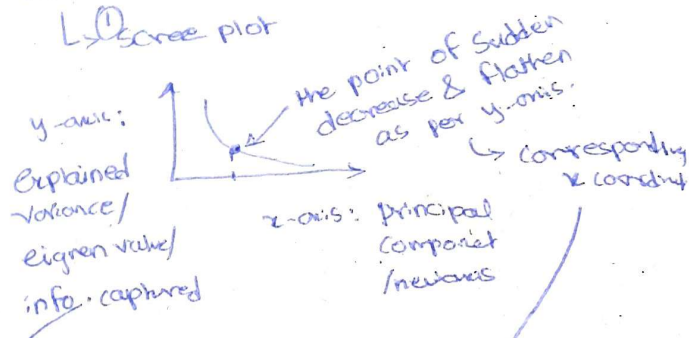 L> ① scree plot
the point of sudden
decrease & flatten
as per y-axis.
↳ corresponding
x coordinat
y-axis:
explained
variance/
eigen value/
info. captured
x-axis: principal
componet